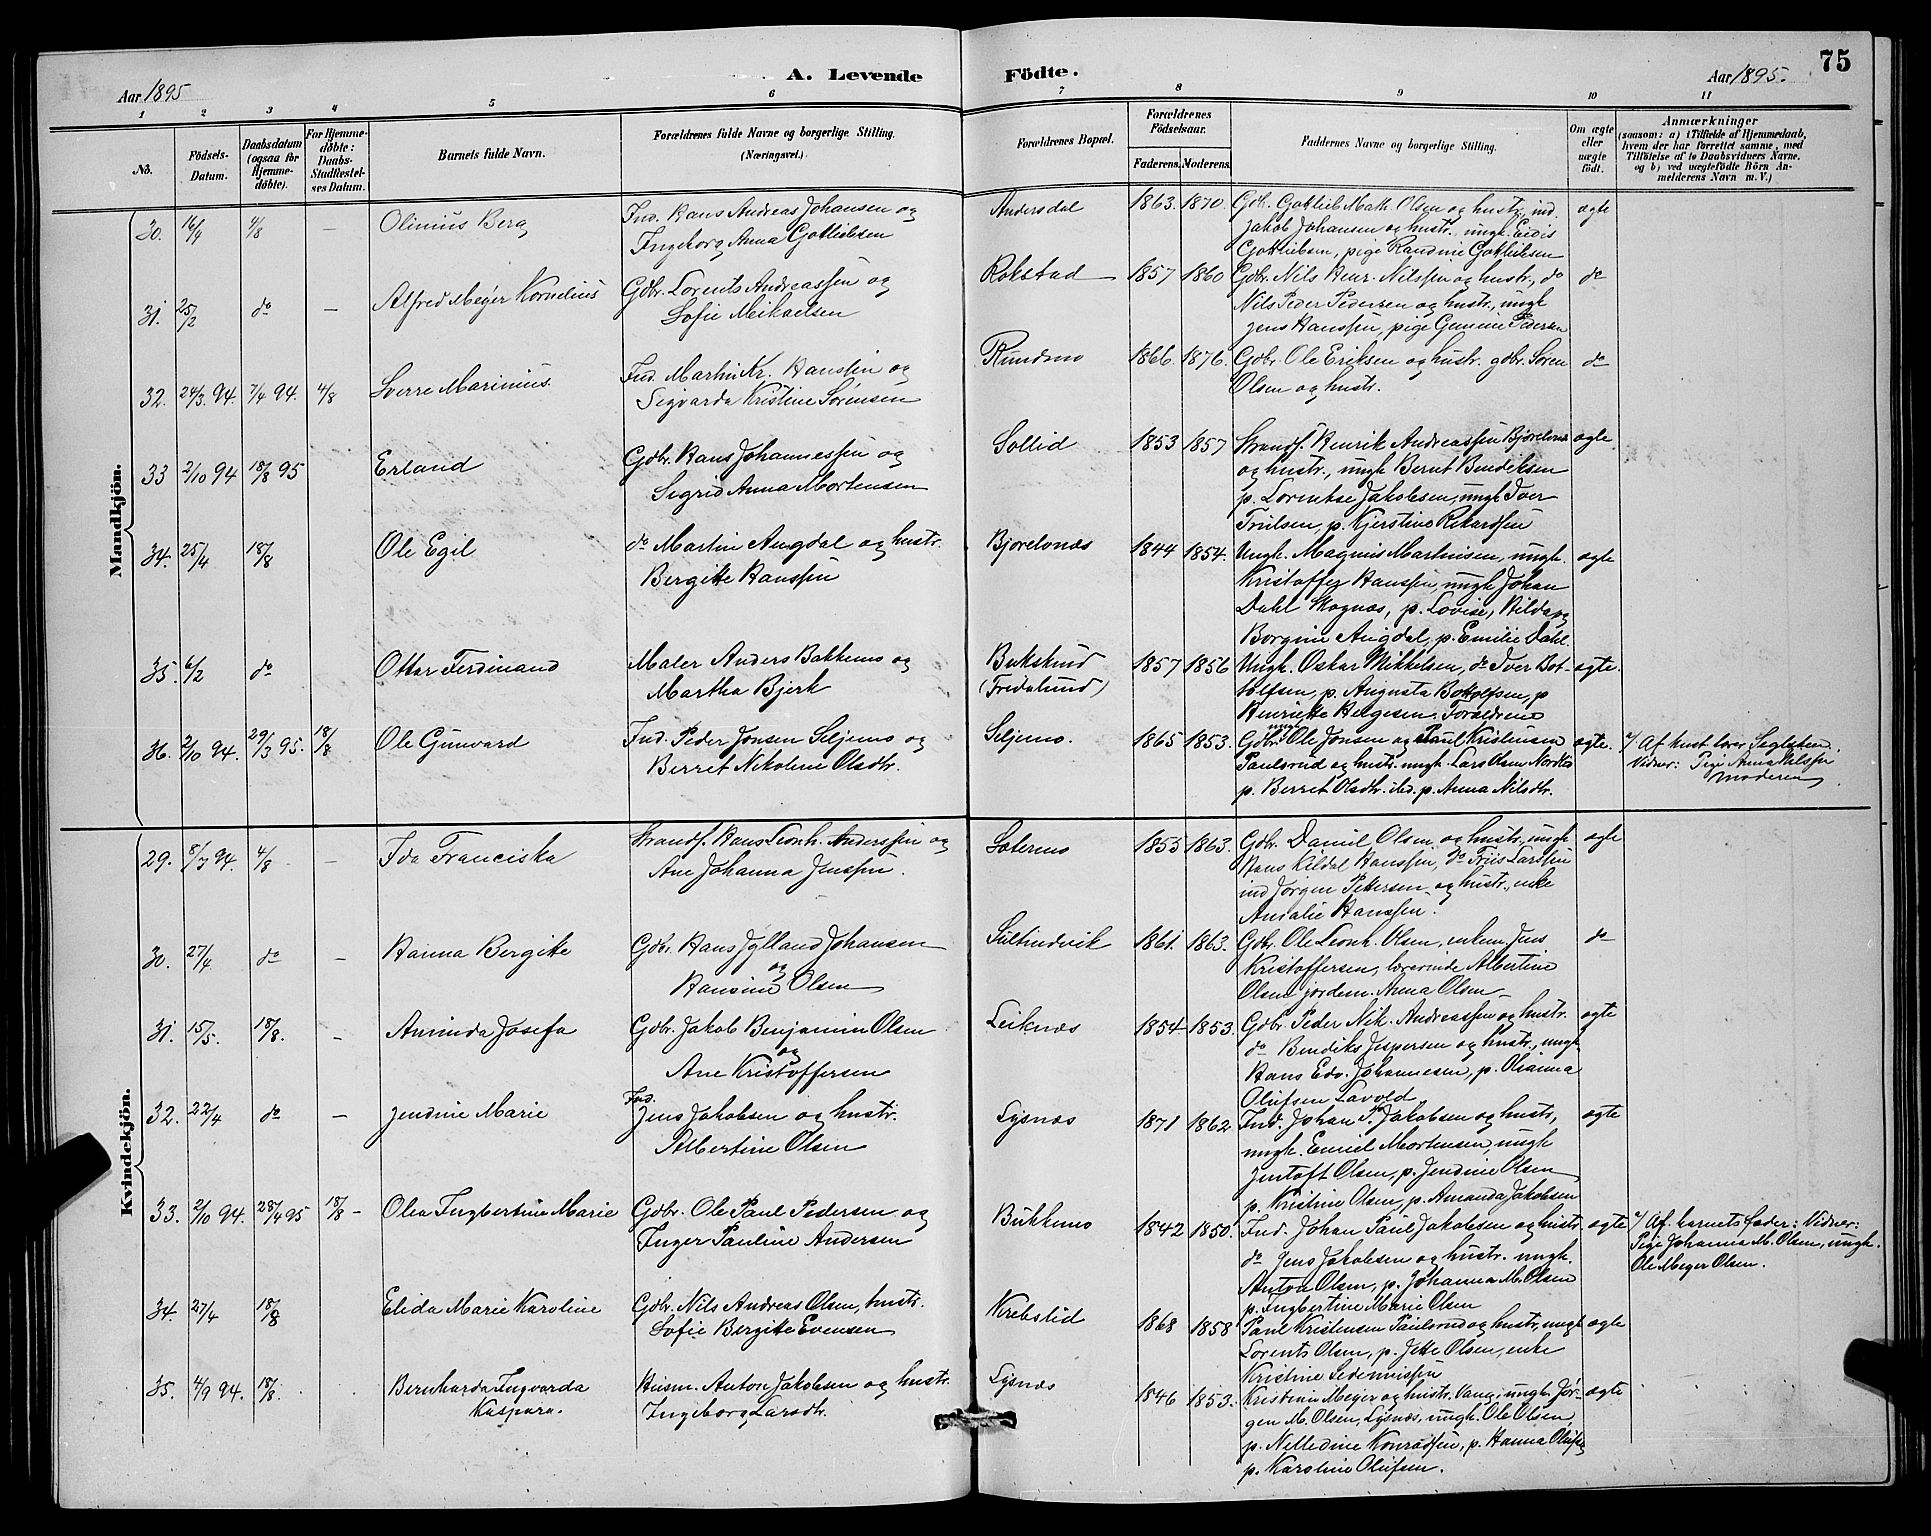 75
A. Levende Födte.
Aar 1895
Aar 1895.
1 2 3 4 5 6 7 8 9 10 11
No.
Födsels-Datum.
Daabsdatum (ogsaa for Hjemme-døbte).
For Hjemme-døbte: Daabs-Stadfestel-ses Datum.
Barnets fulde Navn.
Forældrenes fulde Navne og borgerlige Stilling. (Næringsvei.)
Forældrenes Bopæl.
Forældrenes Födselsaar.
Faderens. Moderens.
Faddernes Navne og borgerlige Stilling.
Om ægte eller uægte født.
Anmærkninger
(saasom: a) i Tilfælde af Hjemmedaab,
hvem der har forrettet samme, med
Tilföielse af to Daabsvidners Navne.
og b) ved uægtefödte Börn An-
melderens Navn m. V.)
Mandkjön.
30. 16/4 4/8 — Olinius Berg
Ind. Hans Andreas Johansen og
Ingeborg Anna Gotliebsen
Andersdal 1863. 1870.
Gdb. Gotlieb Math. Olsen og hustr., ind.
Jakob Johansen og hustr., ungk. Eidis
Gotliebsen, pige Randine Gotliebsen
ægte
31. 25/2 do — Alfred Meyer Kornelius
Gdbr. Lorents Andreassen og
Sofie Mikaelsen
Rokstad 1857 1860
Gdbr. Nils Henr. Nilssen og hustr., do
Nils Peder Pedersen og hustr., ungk
Jens Hanssen, pige Gunine Pedersen
do
32. 24/3 94. 7/4 94. 4/8 Sverre Marinius.
Ind. Martin Kr. Hanssen og
Sigvarda Kristine Sørensen
Rundmo 1866. 1876.
Gdbr. Ole Eriksen og hustr. gdbr. Søren
Olsen og hustr.
do
33 2/10 94 18/8 95 Erland
Gdbr. Hans Johannessen og
Sigrid Anna Mortensen
Sollid 1853 1857
Strandf. Henrik Andreassen Bjorelvnes
og hustr., ungk Bernt Bendiksen
p. Lorentse Jakobsen, ungk Iver
Truelsen, p. Kjerstine Rikardsen
ægte
34. 25/4 18/8 Ole Egil
do Martin Angdal og hustr.
Bergitte Hanssen
Bjorelvnæs 1844 1854.
Ungk. Magnus Martinisen, ungk.
Kristoffer Hanssen, ungk Johan
Dahl Skognæs, p. Lovise, Hilda og
Borgine Angdal, p. Emilie Dahl
ægte
35. 6/2 do Ottar Ferdinand
Maler Anders Bakkemo og
Martha Bjerk
Bukskind
(Fredslund)
1857 1856
Ungk. Oskar Mikkelsen, do Iver Bot-
tolfsen, p. Augusta Bottolfsen, p
Henriette Helgesen. Forældrene
ægte.
36. 2/10 94. 29/3 95. 18/8 Ole Gunvard
Ind. Peder Jonsen Seljemo og
Berret Nikoline Olsdtr.
Seljemo. 1865 1853.
Gdbr. Ole Jonsen og Paul Kristensen
Paulsrud og hustr. ungk. Lars Olsen Nordkås
p. Berret Olsdtr. ibd. p. Anna Nilsdtr.
ægte.
Vidner: Pige Anna
Moderen
Kvindekjön.
29. 8/7 94. 4/8 — Ida Franciska
Strandf. Hans Leonh. Anderssen og
Ane Johanna Jenssen.
Sætermo 1855 1863.
Gdbr. Daniel Olsen og hustr., ungk
Hans Kildal Hanssen, do Friis Larssen
ind Jørgen Pettersen og hustr., enke
Andalie Hanssen.
ægte
30. 27/4 do — Hanna Bergitte
Gdbr. Hans Jylland Johansen
og
Hansine Olsen
Sultindvik 1861. 1863.
Gdbr. Ole Leonh. Olsen, enkem. Jens
Kristoffersen, lærerinde Albertine
Olsen jordem. Anna Olsen
do
31. 15/5. 18/8. — Aminda Josefa
Gdbr. Jakob Benjamin Olsen
og
Ane Kristoffersen
Leiknæs 1854 1853.
Gdbr. Peder Nik. Andreassen og hustr.
do Bendiks Jespersen og hustr., ungk
Hans Edv. Johannesen, p. Olianna
Olufsen Lavold
ægte
32. 22/4 do — Jendine Marie
Ind.
Jens Jakobsen og hustr.
Albertine Olsen
Lysnæs 1871 1862
Ind. Johan P. Jakobsen og hustr,
ungk. Emiel Mortensen, ungk
Jentoft Olsen, p. Jendine Olsen
p. Kristine Olsen, p. Amanda Jakobsen
ægte
33. 2/10 94. 28/4 95 18/8 — Olea Ingbertine Marie
Gdbr. Ole Paul Pedersen og
Inger Pauline Andersen
Bukkemo 1842 1850.
Ind. Johan Paul Jakobsen og hustr
do Jens Jakobsen og hustr. ungk.
Anton Olsen, p. Johanna M. Olsen
p. Ingbertine Marie Olsen
ægte
Af barnets fader: Vidner:
Pige Johanna M. Olsen, ungk.
Ole Meyer Olsen.
34. 27/4 18/8 Elida Marie Karoline
Gdbr. Nils Andreas Olsen, hustr.
Sofie Bergitte Evensen
Krabstid 1868 1858
Paul Kristensen Paulsrud og hustr., ungk
Lorents Olsen, p. Jette Olsen, enke
Kristine
ægte
35. 4/9 94. 18/8. Bernharda Ingvarda
Kaspara.
Husm. Anton Jakobsen og hustr.
Ingeborg Larsdtr.
Lysnæs 1846 1853.
Kristian Meyer og hustr. Vang, ungk Jør-
gen M. Olsen, Lysnæs, ungk. Ole Olsen,
p. Nelledine Konradsen, p. Hanna Olufsen
p. Karoline Olufsen.
ægte